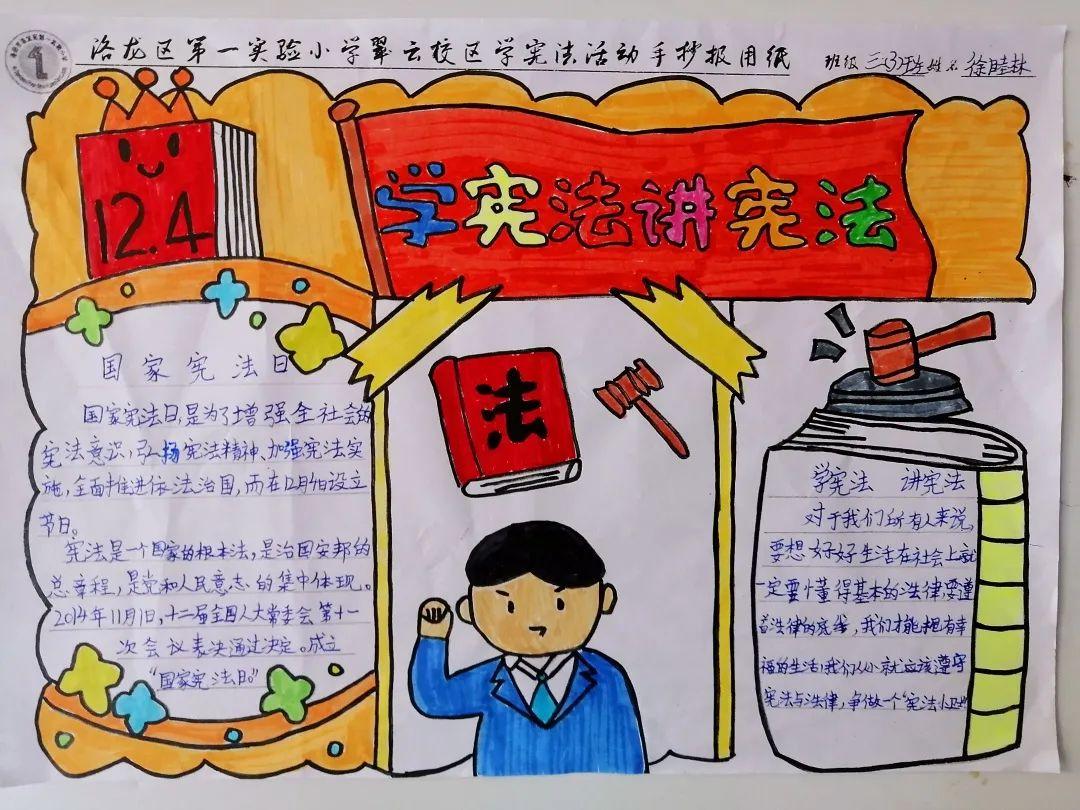 洛龙区第一实验小学翠云校区学宪法活动手抄报用纸
班级 三(3)班 姓名 徐睦林
12.4
学宪法讲宪法
国家宪法日
国家宪法日,是为了增强全社会的
宪法意识,弘扬宪法精神、加强宪法实
施,全面推进依法治国,而在12月4日设立
节日。
宪法是一个国家的根本法,是治国安邦的
总章程,是党和人民意志的集中体现。
2014年11月1日,十二届全国人大常委会第十一
次会议表决通过决定。成立
“国家宪法日。”
法
学宪法 讲宪法
对于我们所有人来说,
要想好好生活在社会上就
一定要懂得基本的法律要遵
着法律的底线,我们才能拥有幸
福的生活,我们从小就应该遵守
宪法与法律,争做一个“宪法小卫士”